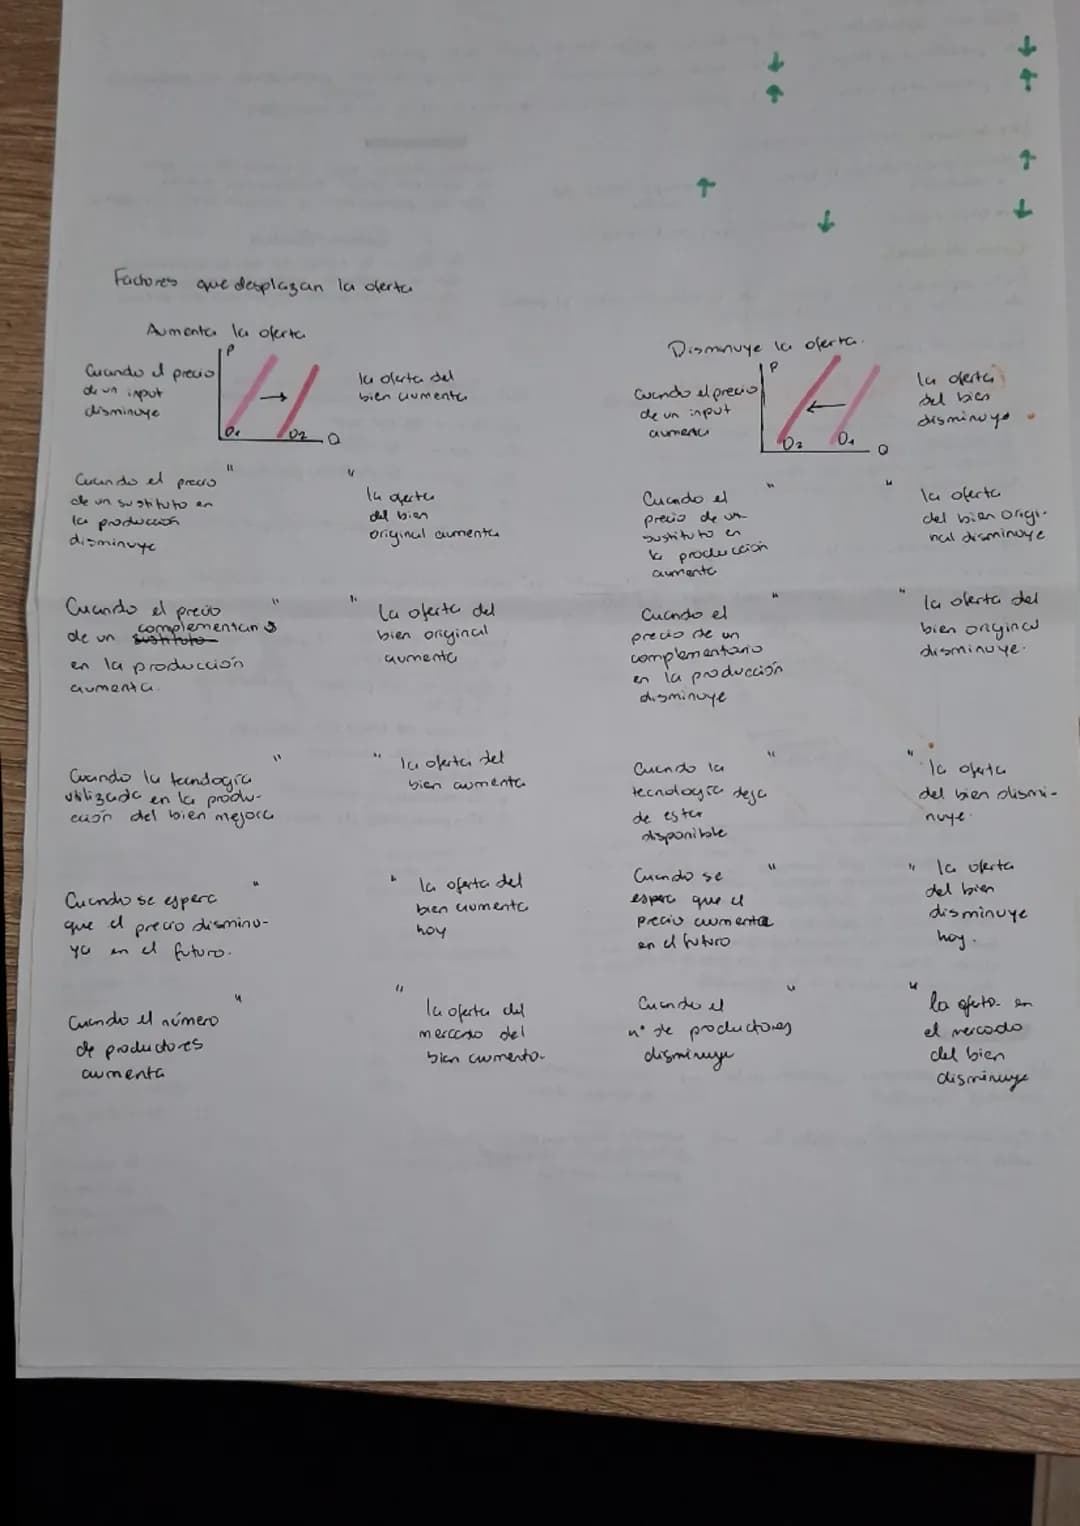 Factores que desplazan la oferta
Aumenta la oferta
Cuando el precio
de un input
disminuye
P
O1
O2
Q
la oferta del
bien aumenta
Cuando el precio
de un sustituto en
la producción
disminuye
"
"
la oferta
del bien
original aumenta
Cuando el precio
de un sustituto complementario
en la producción
aumenta.
"
"
La oferta del
bien original
aumenta
Cuando la tecnología
utilizada en la produ-
cción del bien mejora
"
"
la oferta del
bien aumenta
Cuando se espera
que el precio disminu-
ya en el futuro.
"
"
la oferta del
bien aumenta
hoy
Cuando el número
de productores
aumenta
"
"
la oferta del
mercado del
bien aumenta.
Disminuye la oferta.
Cuando el precio
de un input
aumenta
P
O2
O1
Q
la oferta
del bien
disminuye
Cuando el
precio de un
sustituto en
la producción
aumenta
"
"
la oferta
del bien origi-
nal disminuye
Cuando el
precio de un
complementario
en la producción
disminuye
"
"
la oferta del
bien original
disminuye.
Cuando la
tecnología deja
de estar
disponible
"
"
la oferta
del bien dismi-
nuye.
Cuando se
espera que el
precio aumenta
en el futuro
"
"
la oferta
del bien
disminuye
hoy.
Cuando el
nº de productores
disminuye
"
"
la oferta en
el mercado
del bien
disminuye